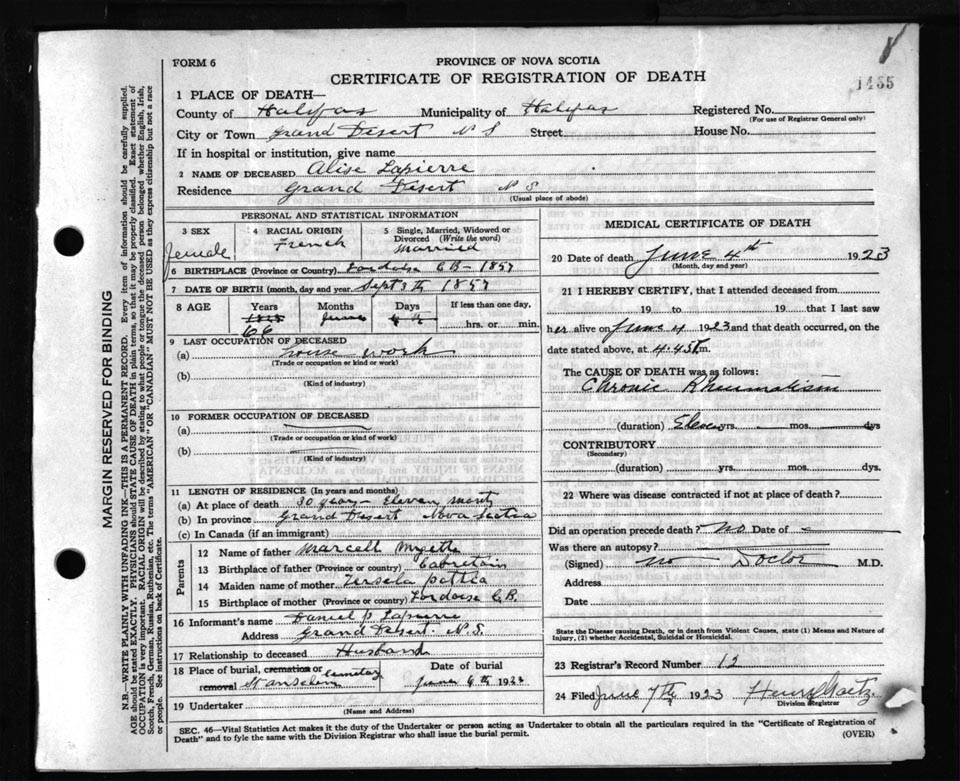 FORM 6
PROVINCE OF NOVA SCOTIA
CERTIFICATE OF REGISTRATION OF DEATH
1455
1 PLACE OF DEATH—
County of Halifax Municipality of Halifax Registered No.
(For use of Registrar General only)
City or Town Grand Desert N S Street House No.
If in hospital or institution, give name
2 NAME OF DECEASED Alise Lapierre
Residence Grand Desert N S
(Usual place of abode)
PERSONAL AND STATISTICAL INFORMATION
3 SEX 4 RACIAL ORIGIN 5 Single, Married, Widowed or Divorced (Write the word)
Female French Married
6 BIRTHPLACE (Province or Country) C B - 1857
7 DATE OF BIRTH (month, day and year) Sept 3th 1857
8 AGE Years Months Days If less than one day,
66 hrs. or min.
9 LAST OCCUPATION OF DECEASED
(a) house work
(Trade or occupation or kind or work)
(b)
(Kind of industry)
10 FORMER OCCUPATION OF DECEASED
(a)
(Trade or occupation or kind of work)
(b)
(Kind of industry)
11 LENGTH OF RESIDENCE (In years and months)
(a) At place of death 30 years - Eleven mont
(b) In province Grand Desert Nova Scotia
(c) In Canada (if an immigrant)
Parents
12 Name of father Marcell Myette
13 Birthplace of father (Province or Country)
14 Maiden name of mother
15 Birthplace of mother (Province or country) C.B.
16 Informant's name Daniel P Lapierre
Address Grand Desert N.S.
17 Relationship to deceased Husband
18 Place of burial, cremation or removal cemetery Date of burial
June 6th 1923
19 Undertaker
(Name and Address)
MEDICAL CERTIFICATE OF DEATH
20 Date of death June 4th 1923
(Month, day and year)
21 I HEREBY CERTIFY, that I attended deceased from
19 to 19 that I last saw
her alive on June 4 1923 and that death occurred, on the
date stated above, at 4.45 P.m.
The CAUSE OF DEATH was as follows:
Chronic Rheumatism
(duration) Eleven yrs. mos. dys
CONTRIBUTORY
(Secondary)
(duration) yrs. mos. dys.
22 Where was disease contracted if not at place of death?
Did an operation precede death? No. Date of
Was there an autopsy?
(Signed) No Doctor M.D.
Address
Date
State the Disease causing Death, or in death from Violent Causes, state (1) Means and Nature of
Injury, (2) whether Accidental, Suicidal or Homicidal.
23 Registrar's Record Number 12
24 Filed June 7th 1923 Henry
Division Registrar
SEC. 46—Vital Statistics Act makes it the duty of the Undertaker or person acting as Undertaker to obtain all the particulars required in the "Certificate of Registration of
Death" and to fyle the same with the Division Registrar who shall issue the burial permit. (OVER)
MARGIN RESERVED FOR BINDING
N.B.—WRITE PLAINLY WITH UNFADING INK—THIS IS A PERMANENT RECORD. Every item of information should be carefully supplied.
AGE should be stated EXACTLY. PHYSICIANS should STATE CAUSE OF DEATH in plain terms, so that it may be properly classified. Exact statement of
OCCUPATION is very important. RACIAL ORIGIN will be described by stating to what people or tongue the deceased person belonged whether English, Irish,
Scotch, French, German, Russian, Ruthenian, etc. The terms "AMERICAN" or "CANADIAN" MUST NOT BE USED as they express citizenship but not a race
or people. See instructions on back of Certificate.